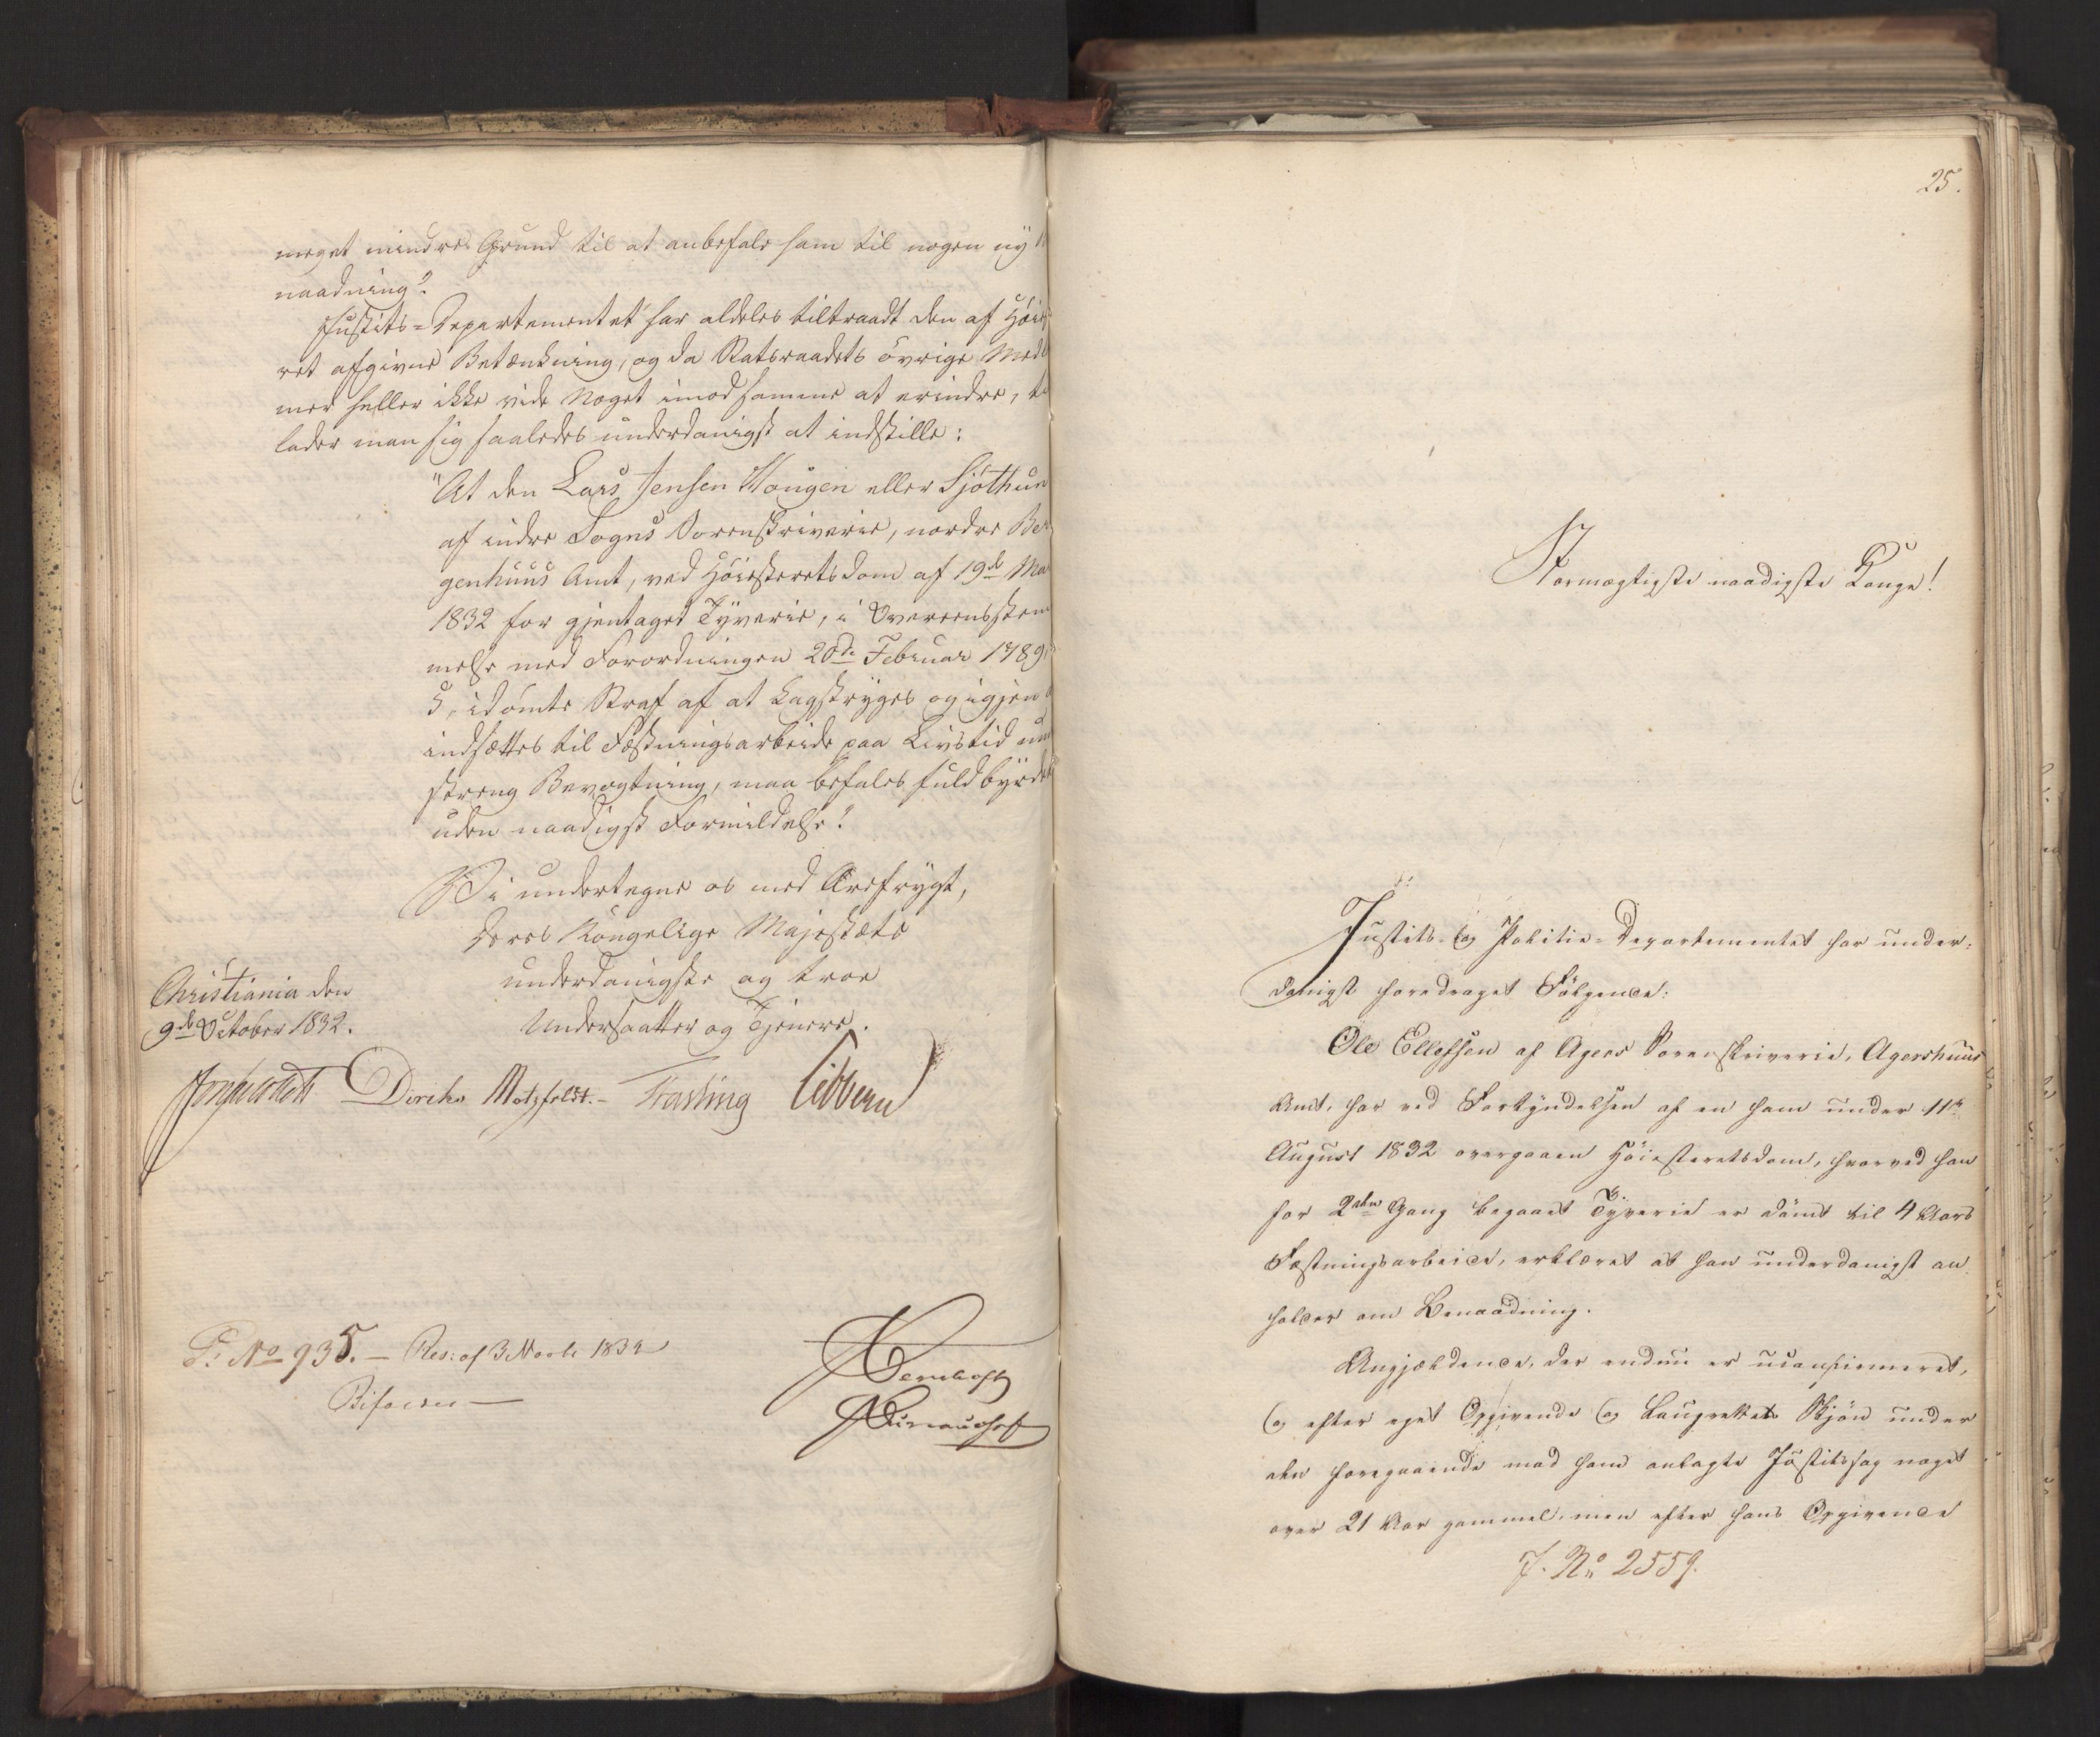 meget mindre Grund til at anbefale ham til nogen ny
naadning".
Justits-Departementet har aldeles tiltraadt den af Høieste
ret afgivne Betænkning, og da Statsraadets övrige Medlem
mer heller ikke vide Noget imod samme at erindre, til
lader man sig saaledes underdanigst at indstille:
"At den Lars Jensen Hougen eller Sjöthun
af indre Sogns Sorenskriverie, nordre Ber
genhuus Amt, ved Höiesteretsdom af 19de Ma
1832 for gjentaget Tyverie, i Overeensstem
melse med Forordningen 20de Februar 1789
5, idömte Straf af at Kagstryges og igjen
indsættes til Fæstningsarbeide paa Livstid un
streng Bevogtning, maa befales fuldbyrdet
uden naadigst Formildelse".
Vi undertegne os med Ærefrygt,
Deres Kongelige Majestæts
underdanigste og troe
Undersaatter og Tjenere.
Christiania den
9de October 1832.
Diriks Motzfeldt. Fasting Sibbern
P: No 935. — Res: af 3 Novbr 1832
Bifaldes —
25.
Stormægtigste naadigste Konge!
Justits- og Politie-Departementet har under-
danigst foredraget Fölgende:
Ole Ellefsen af Agers Sorenskriverie, Agershuus
Amt, har ved Forkyndelsen af en ham under 11te
August 1832 overgaaen Höiesteretsdom, hvorved han
for 2den Gang begaaet Tyverie er dömt til 4 Aars
Fæstningsarbeide, erklæret at han underdanigst an-
holder om Benaadning.
Angjældende, der endnu er uconfirmeret,
og efter eget Opgivende og Laugrettets Skjön under
den foregaaende mod ham anlagte Justitssag noget
over 21 Aar gammel, men efter hans Opgivende
J. No 2559.